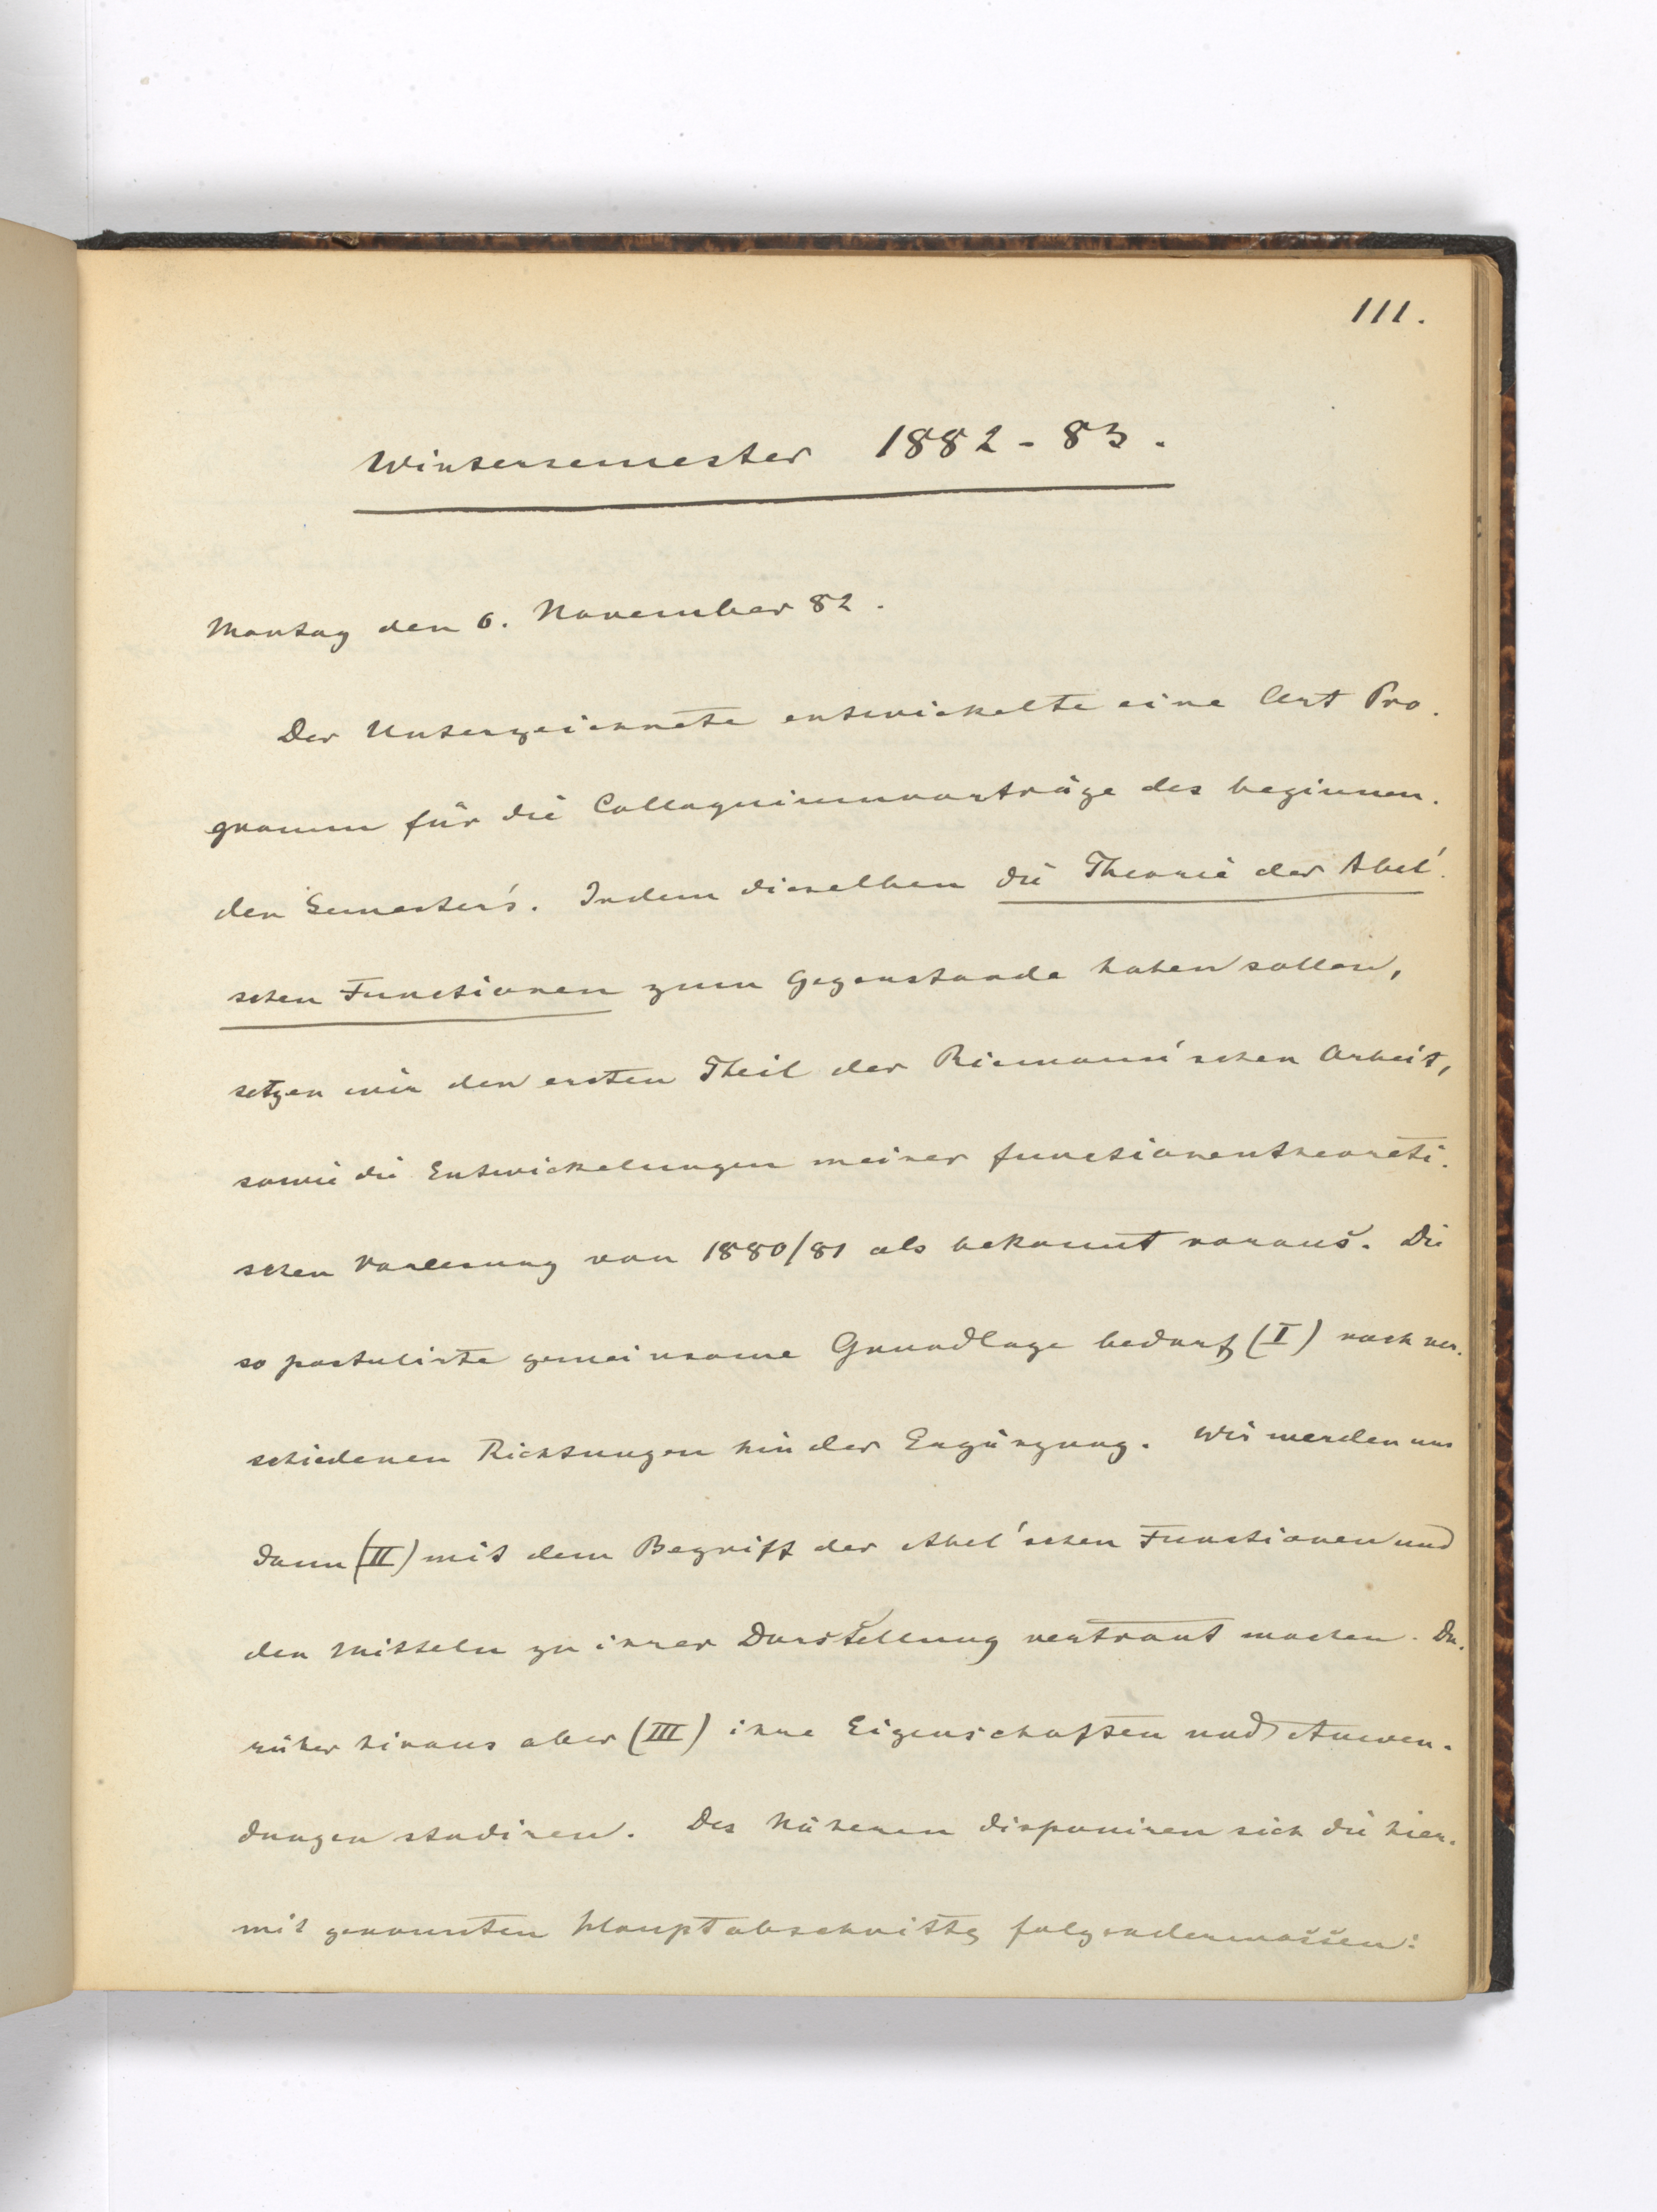 111.
Wintersemester 1882-83.
Montag den 6. November 82.
Der Unterzeichnete entwickelte eine Art Pro-
gramm für die Colloquiumvorträge des beginnen-
den Semester's. Indem dieselben die Theorie der Abel'-
schen Functionen zum Gegenstande haben sollen,
setzen wir den ersten Theil der Riemann'schen Arbeit,
sowie die Entwickelungen meiner functionentheoreti-
schen Vorlesung von 1880/81 als bekannt voraus. Die
so postulirte gemeinsame Grundlage bedarf (I) nach ver-
schiedenen Richtungen hin der Ergänzung. Wir werden uns
dann (II) mit dem Begriff der Abel'schen Functionen und
den Mitteln zu ihrer Darstellung vertraut machen. Da-
rüber hinaus aber (III) ihre Eigenschaften und Anwen-
dungen studiren. Des Näheren disponiren sich die hier-
mit genannten Hauptabschnitte folgendermassen: